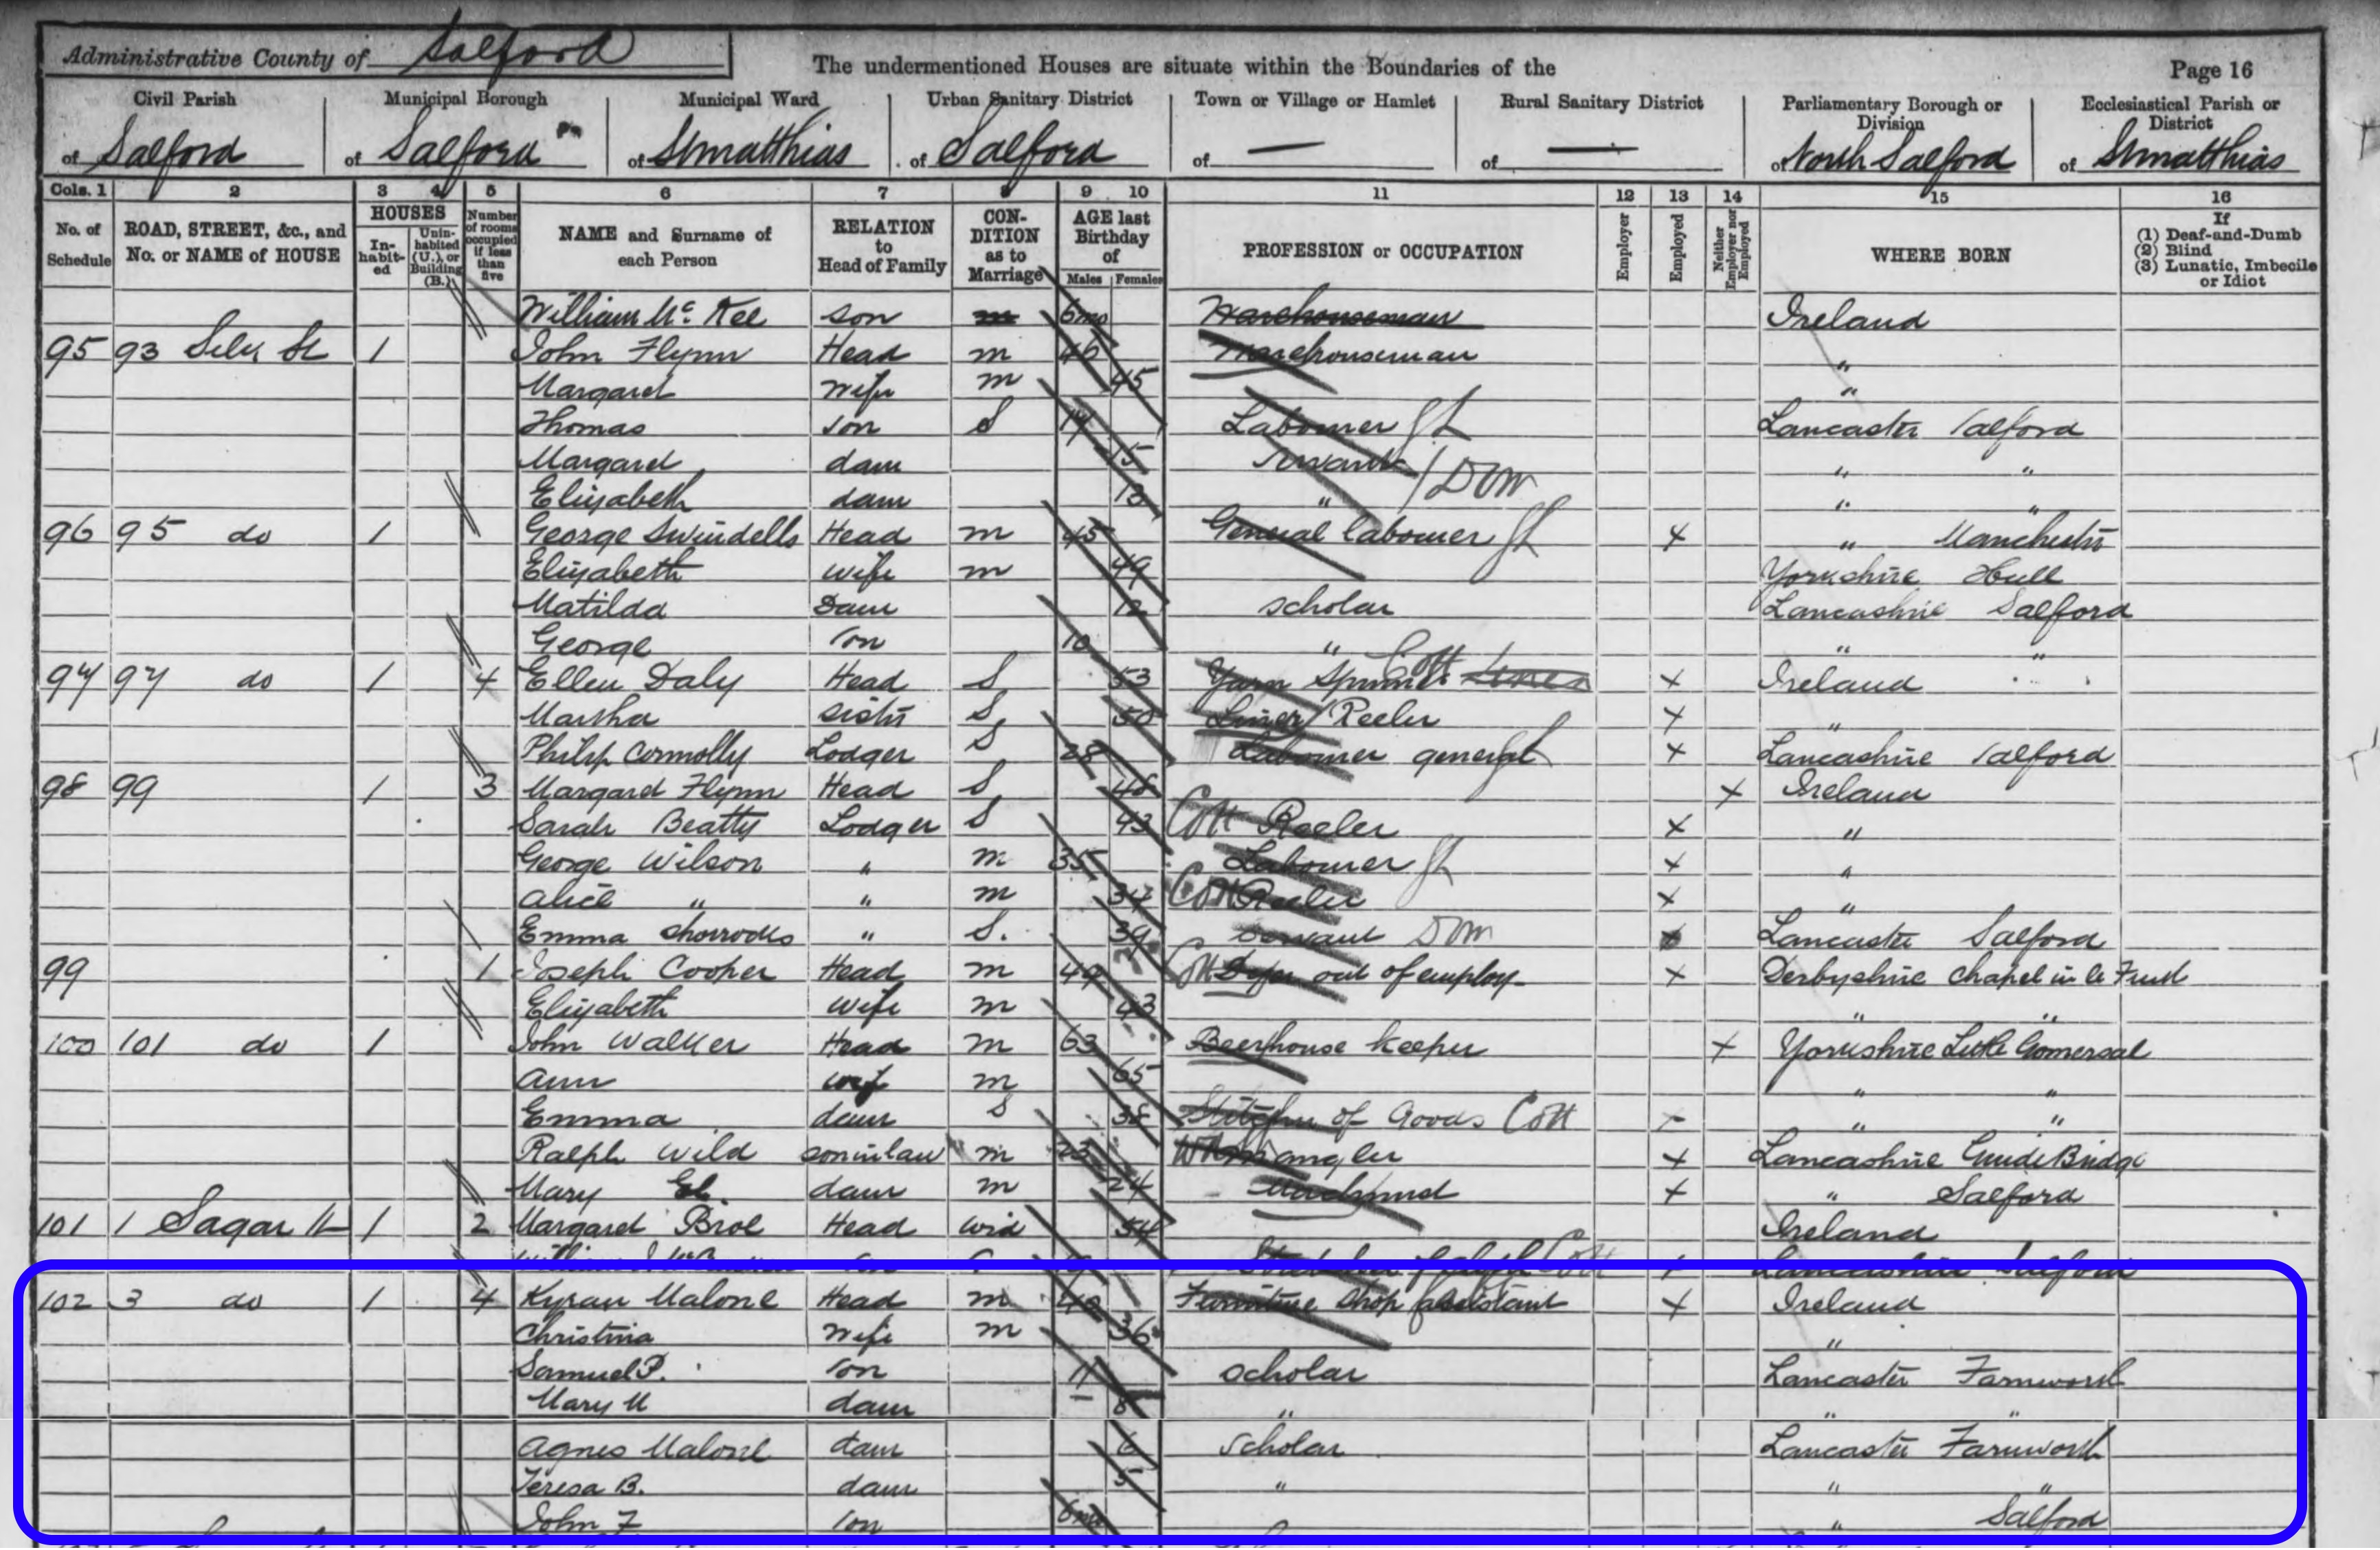 Administrative County of Salford
The undermentioned Houses are situate within the Boundaries of the
Page 16
Civil Parish of Salford
Municipal Borough of Salford
Municipal Ward of St Matthias
Urban Sanitary District of Salford
Town or Village or Hamlet of —
Rural Sanitary District of —
Parliamentary Borough or Division of North Salford
Ecclesiastical Parish or District of St Matthias
Cols. 1 2 3 4 5 6 7 8 9 10 11 12 13 14 15 16
No. of Schedule
ROAD, STREET, &c., and No. or NAME of HOUSE
HOUSES
In-habit-ed
Unin-habited (U.), or Building (B.)
Number of rooms occupied if less than five
NAME and Surname of each Person
RELATION to Head of Family
CON-DITION as to Marriage
AGE last Birthday of
Males Females
PROFESSION or OCCUPATION
Employer
Employed
Neither Employer nor Employed
WHERE BORN
If
(1) Deaf-and-Dumb
(2) Blind
(3) Lunatic, Imbecile or Idiot
William Mc Kee son 6mo Warehouseman Ireland
95 93 Silk St 1 John Flynn Head m 46 Warehouseman "
Margaret Wife m 45 "
Thomas son S Labourer GL Lancaster Salford
Margaret daur 15 Servant Dom " "
Elizabeth daur 13 " " "
96 95 do 1 George Swindells Head m 45 General labourer GL x " Manchester
Elizabeth wife m 49 Yorkshire Hull
Matilda Daur 12 scholar Lancashire Salford
George son 10 " " "
97 97 do 1 4 Ellen Daly Head S 53 Yarn Spinner Cott x Ireland
Martha sister S 50 Reeler x "
Philip Connolly Lodger S 28 Labourer general x Lancashire Salford
98 99 1 3 Margaret Flynn Head S 48 x Ireland
Sarah Beatty Lodger S 43 Cott Reeler x "
George Wilson " m 35 Labourer GL x "
Alice " " m 34 Cott Reeler x "
Emma Shorrocks " S. 39 Servant Dom x Lancaster Salford
99 1 Joseph Cooper Head m 49 Cott Dyer out of employ x Derbyshire Chapel in le Frith
Elizabeth wife m 43 " "
100 101 do 1 John Walker Head m 63 Beerhouse keeper x Yorkshire Little Gomersal
Ann wife m 65 " "
Emma daur S 38 Stitcher of Goods Cott " "
Ralph Wild soninlaw m 25 x Lancashire Guide Bridge
Mary El. daur m 24 Machinist x " Salford
101 1 Sagar St 1 2 Margaret Wid Head 54 Ireland
William son Cott Lancashire Salford
102 3 do 1 4 Kyran Malone Head m 40 Furniture Shop Assistant x Ireland
Christina Wife m 36 "
Samuel P. son 11 scholar Lancaster Farnworth
Mary M daur 8 " " "
Agnes Malone daur 6 Scholar Lancaster Farnworth
Teresa B. daur 5 " " "
John F son 6mo " Salford